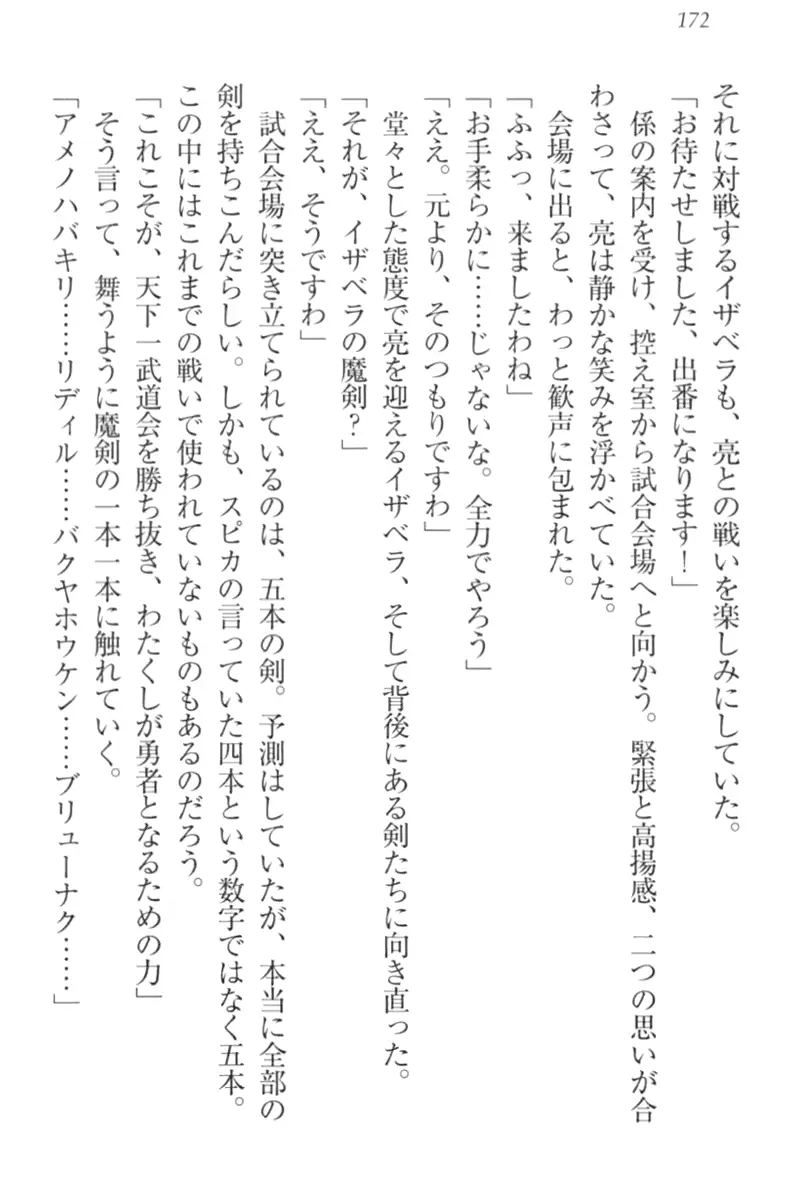 172
それに対戦するイザベラも、亮との戦いを楽しみにしていた。
「お待たせしました、出番になります！」
係の案内を受け、控え室から試合会場へと向かう。緊張と高揚感、二つの思いが合
わさって、亮は静かな笑みを浮かべていた。
会場に出ると、わっと歓声に包まれた。
「ふふっ、来ましたわね」
「お手柔らかに……じゃないな。全力でやろう」
「ええ。元より、そのつもりですわ」
堂々とした態度で亮を迎えるイザベラ、そして背後にある剣たちに向き直った。
「それが、イザベラの魔剣？」
「ええ、そうですわ」
試合会場に突き立てられているのは、五本の剣。予測はしていたが、本当に全部の
剣を持ちこんだらしい。しかも、スピカの言っていた四本という数字ではなく五本。
この中にはこれまでの戦いで使われていないものもあるのだろう。
「これこそが、天下一武道会を勝ち抜き、わたくしが勇者となるための力」
そう言って、舞うように魔剣の一本一本に触れていく。
「アメノハバキリ……リディル……バクヤホウケン……ブリューナク……」